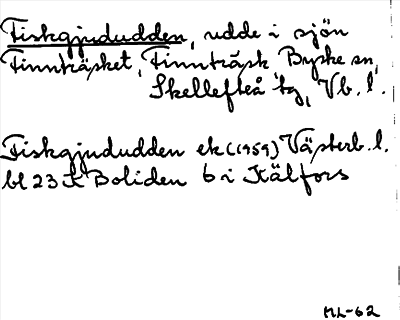 Fiskgjududden, udde i sjön
Finnträsket, Finnträsk Byske sn,
Skellefteå tg, Vb. l.
Fiskgjududden ek (1959) Västerb. l.
bl 23 K Boliden 6 i Kälfors
ML-62